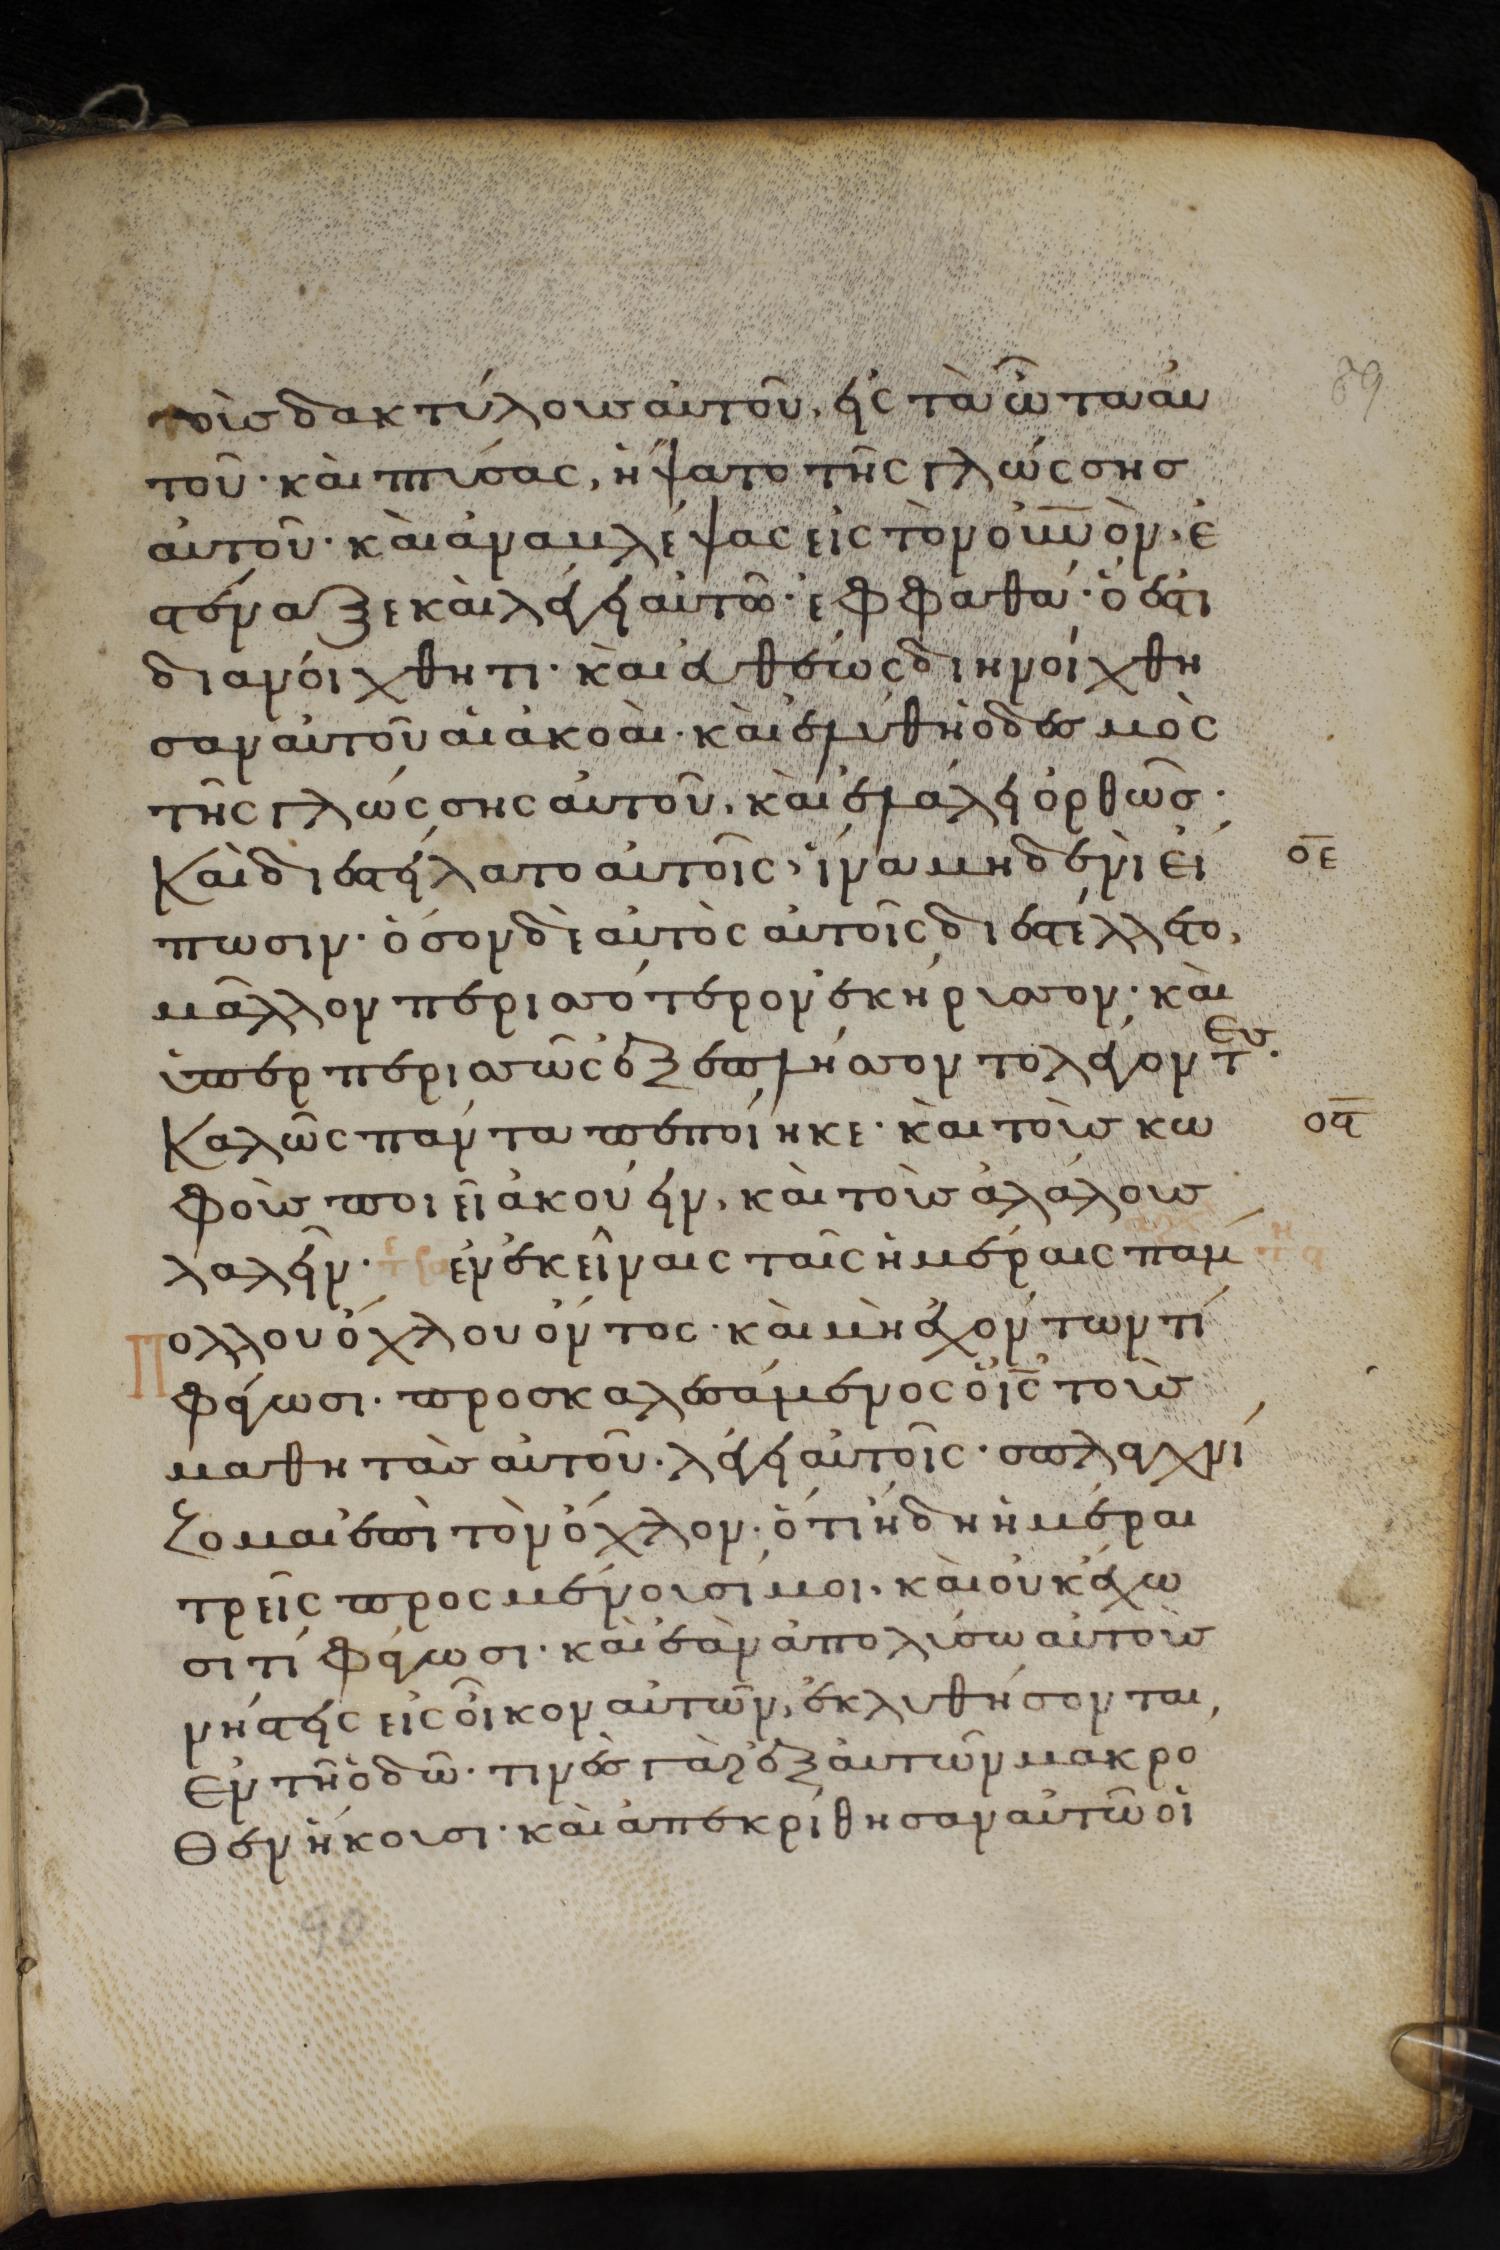 τοὺς δακτύλους αὐτοῦ, εἰς τὰ ὦτα αὐ
τοῦ· καὶ πτύσας, ἥψατο τῆς γλώσσης
αὐτοῦ· καὶ ἀναβλέψας εἰς τὸν οὐ̅ν̅ὸν, ἐ
στέναξε καὶ λέγει αὐτῶ· ἐφφαθά· ὅ ἐστι
διανοίχθητι· καὶ εὐθέως διηνοίχθη
σαν αὐτοῦ αἱ ἀκοαὶ· καὶ ἐλύθη ὁ δεσμὸς
τῆς γλώσσης αὐτοῦ, καὶ ἐλάλει ὀρθῶς·
Καὶ διεστείλατο αὐτοῖς, ἵνα μηδενὶ εἴ ο̅ε̅
πωσιν· ὅσον δὲ αὐτὸς αὐτοῖς διεστέλλετο,
μᾶλλον περισσότερον ἐκήρυσσον· καὶ
ὑπερπερισσῶς ἐξεπλήσσοντο λέγοντ ες·
Καλῶς πάντα πεποίηκε· καὶ τοὺς κω ο̅ϛ̅
φοὺς ποιεῖ ἀκούειν, καὶ τοὺς ἀλάλους
λαλεῖν· ἐν ἐκείναις ταῖς ἡμέραις παμ
πόλλου ὄχλου ὄντος· καὶ μὴ ἐχόντων τί
φάγωσι· προσκαλεσάμενος ὁ ι̅ς̅ τοὺς
μαθητὰς αὐτοῦ· λέγει αὐτοῖς· σπλαγχνί
ζομαι ἐπὶ τὸν ὄχλον· ὅτι ἤδη ἡμέραι
τρεῖς προσμένουσί μοι, καὶ οὐκ ἔχου
σι τί φάγωσι· καὶ ἐὰν ἀπολύσω αὐτοὺς
νήστεις εἰς οἶκον αὐτῶν, ἐκλυθήσονται,
Ἐν τῆ ὁδῶ· τινὲς γὰρ ἐξ αὐτῶν μακρο
Θεν ἥκουσι· καὶ ἀπεκρίθησαν αὐτῶ οἱ
89
90